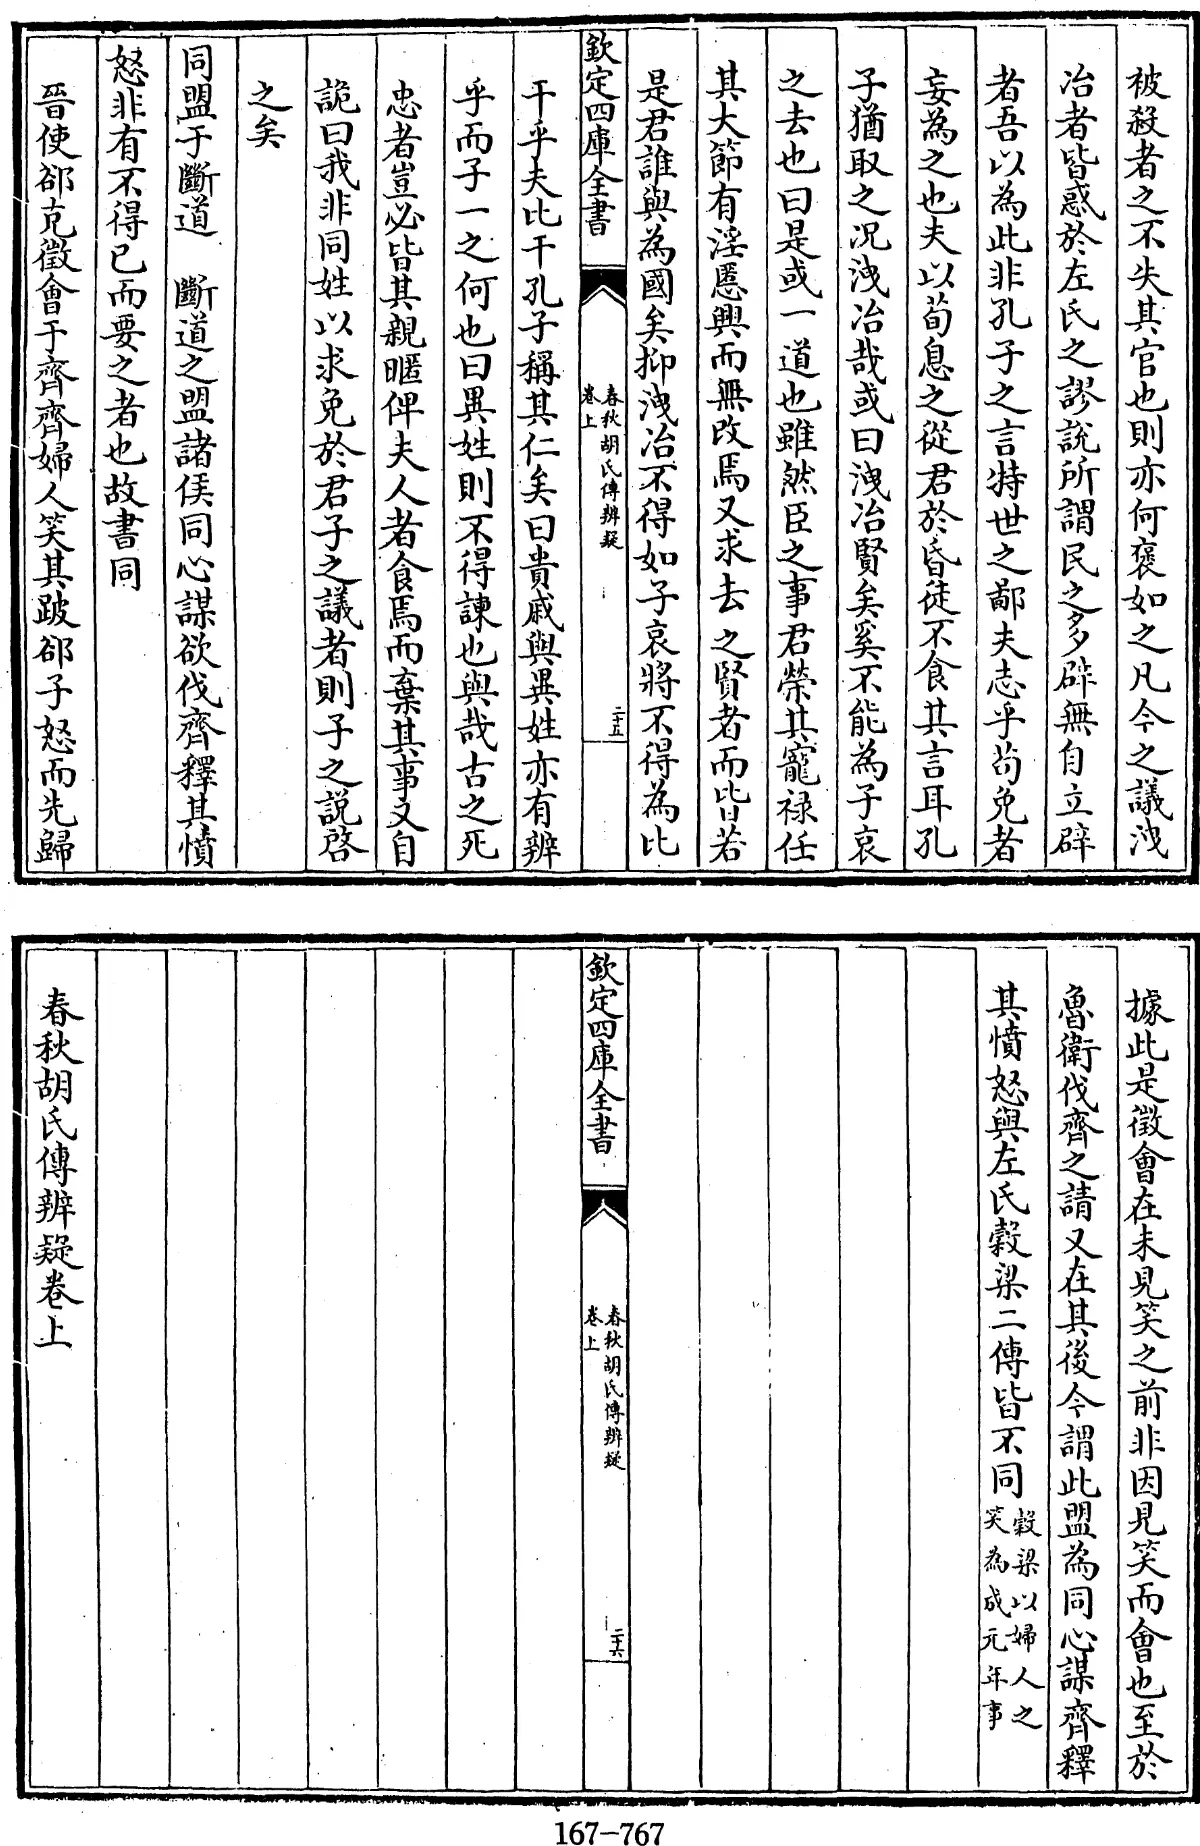 被殺者之不失其官也則亦何褒如之凡今之議洩
冶者皆惑於左氏之謬說所謂民之多辟無自立辟
者吾以為此非孔子之言特世之鄙夫志乎苟免者
妄為之也夫以荀息之從君於昏徒不食其言耳孔
子猶取之况洩冶哉或曰洩冶賢矣奚不能為子哀
之去也曰是或一道也雖然臣之事君榮其寵禄任
其大節有淫慝興而無改焉又求去之賢者而皆若
是君誰與為國矣抑洩冶不得如子哀將不得為比
欽定四庫全書
春秋胡氏傳辨疑
卷上
二十五
干乎夫比干孔子稱其仁矣曰貴戚與異姓亦有辨
乎而子一之何也曰異姓則不得諫也與哉古之死
忠者豈必皆其親暱俾夫人者食焉而棄其事又自
詭曰我非同姓以求免於君子之議者則子之說啓
之矣
同盟于斷道 斷道之盟諸侯同心謀欲伐齊釋其憤
怒非有不得已而要之者也故書同
晉使郤克徵會于齊齊婦人笑其跛郤子怒而先歸
據此是徵會在未見笑之前非因見笑而會也至於
魯衛伐齊之請又在其後今謂此盟為同心謀齊釋
其憤怒與左氏穀梁二傳皆不同穀梁以婦人之
笑為成元年事
欽定四庫全書
春秋胡氏傳辨疑
卷上
二十六
春秋胡氏傳辨疑卷上
167-767